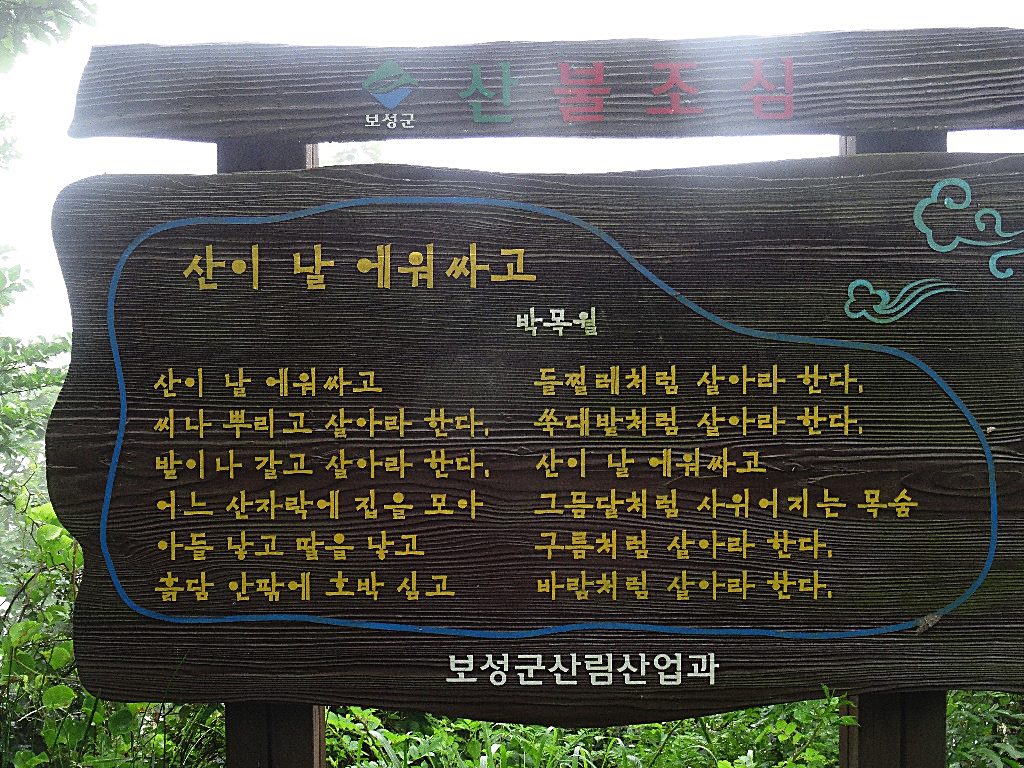 산불조심
보성군
산이 날 에워싸고
박목월
산이 날 에워싸고
씨나 뿌리고 살아라 한다,
발이나 갈고 살아라 한다,
어느 산자락에 집을 모아
아들 낳고 딸을 낳고
흙담 안팎에 호박 심고
들찔레처럼 살아라 한다,
쑥대밭처럼 살아라 한다,
산이 날 에워싸고
그믐달처럼 사위어지는 목숨
구름처럼 살아라 한다,
바람처럼 살아라 한다,
보성군산림산업과